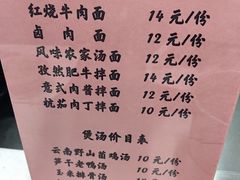 红烧牛肉面 14元/份
卤肉面 12元/份
风味农家汤面 12元/份
孜然肥牛拌面 14元/份
意式肉酱拌面 12元/份
杭茄肉丁拌面 10元/份
煲汤价目表
云南野山菌鸡汤 10元/份
笋干老鸭汤 10元/份
玉米排骨汤 10元/份